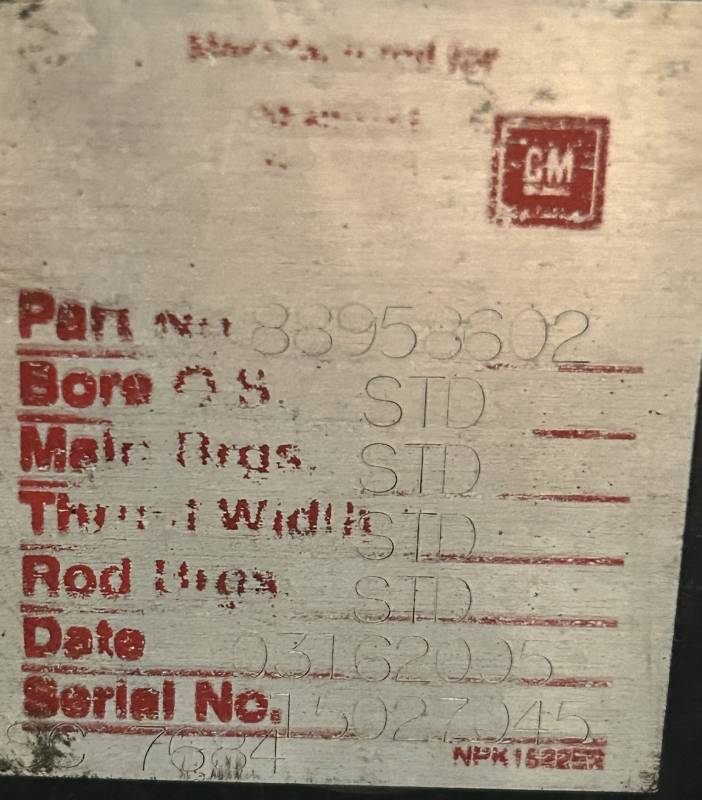 for
GM
Part No. 88958602
Bore O.S. STD
Main Brgs. STD
Thrust Width STD
Rod Brgs. STD
Date 03162005
Serial No. 15027045
7684